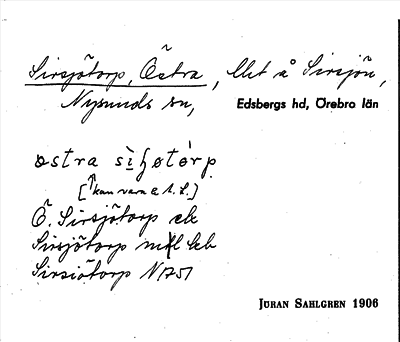 Sirsjötorp, Östra, Uet å Sirsjön,
Nysunds sn, Edsbergs hd, Örebro län
østra siʃøtòrp
[kan vara e h. l.]
Ö. Sirsjötorp ek
Sirsjötorp mtl
Sirsiötorp N 1751
JÖRAN SAHLGREN 1906